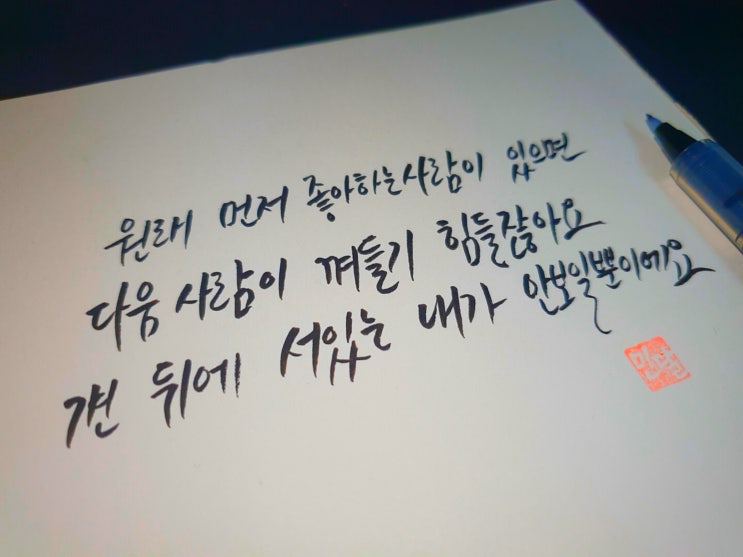 원래 먼저 좋아하는사람이 있으면
다음 사람이 껴들기 힘들잖아요
걘 뒤에 서있는 내가 안보일뿐이에요